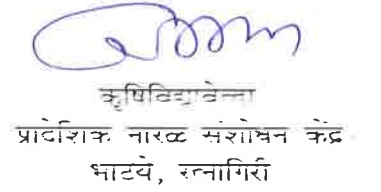 कृषिविद्यावेत्ता
प्रादेशिक नारळ संशोधन केंद्र
भाटये, रत्नागिरी